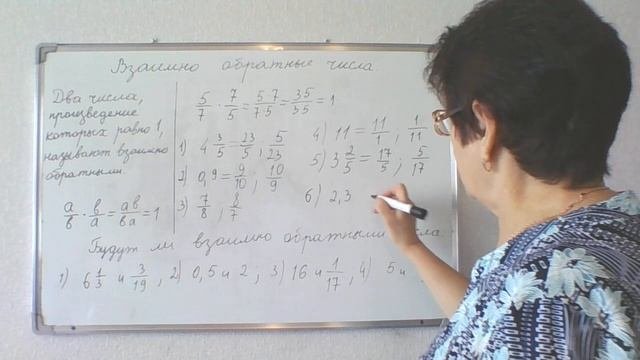 Взаимно обратные числа.
Два числа,
произведение
которых равно 1,
называют взаимно
обратными.
a/b · b/a = ab/ba = 1
5/7 · 7/5 = 5·7/7·5 = 35/35 = 1
1) 4 3/5 = 23/5 ; 5/23
2) 0,9 = 9/10 ; 10/9
3) 7/8 ; 8/7
4) 11 = 11/1 ; 1/11
5) 3 2/5 = 17/5 ; 5/17
6) 2,3
Будут ли взаимно обратными числа
1) 6 1/3 и 3/19 , 2) 0,5 и 2 ; 3) 16 и 1/17 , 4) 5 и